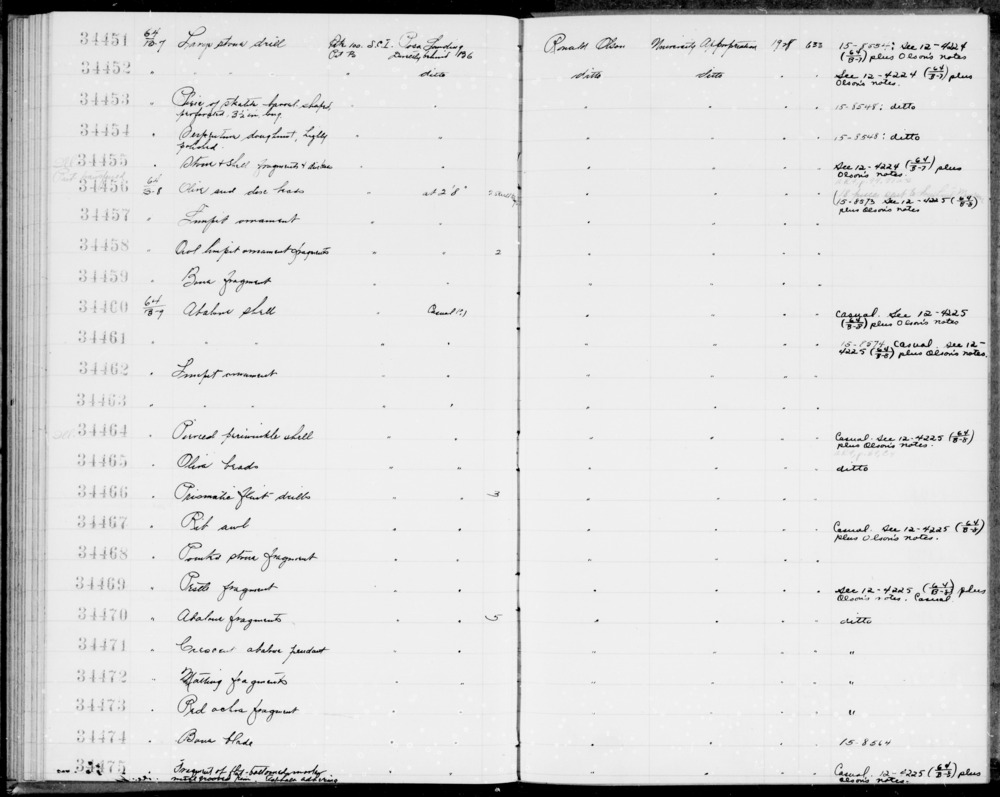 34451 64/B-7 Lamp stone drill Coso Landing 136 Ronald Olson University Appropriation 1928 633 15-8554; See 12-4224
(64/B-7) plus Olson's notes
34452 " " " ditto ditto ditto See 12-4224 (64/B-7) plus
Olson's notes.
34453 of skate barval shaped, 15-8548; ditto
perforated, 3½ in. long
34454 Serpentine doughnut, highly 15-8548: ditto
polished.
34455 Stone & shell fragments & disks See 12-4224 (64/B-7) plus
Olson's notes.
34456 64/B-8 Olive and disc beads at 2'8"
34457 Limpet ornament (15-8573 See 12-4225 (64/B-8)
plus Olson's notes
34458 Oval limpet ornament fragments 2
34459 Bone fragment
34460 64/B-9 Abalone shell Casual (?) Casual. See 12-4225
(64/B-8) plus Olson's notes
34461 15-8574, Casual. See 12-
4225 (64/B-8) plus Olson's notes.
34462 Limpet ornament
34463
34464 Pierced periwinkle shell Casual. See 12-4225 (64/B-8)
plus Olson's notes.
34465 Oliva beads ditto
34466 Prismatic flint drills 3
34467 Rib awl Casual. See 12-4225 (64/B-8)
plus Olson's notes.
34468 Pointed stone fragment
34469 Pestle fragment See 12-4225 (64/B-8) plus
Olson's notes. Casual
34470 Abalone fragments 5 ditto
34471 Crescent abalone pendant "
34472 Matting fragments
34473 Red ochre fragment "
34474 Bone blade 15-8564
34475 Fragment of flat-bottomed mortar Casual. 12-4225 (64/B-8) plus
with grooved rim asphalt adhering Olson's notes.